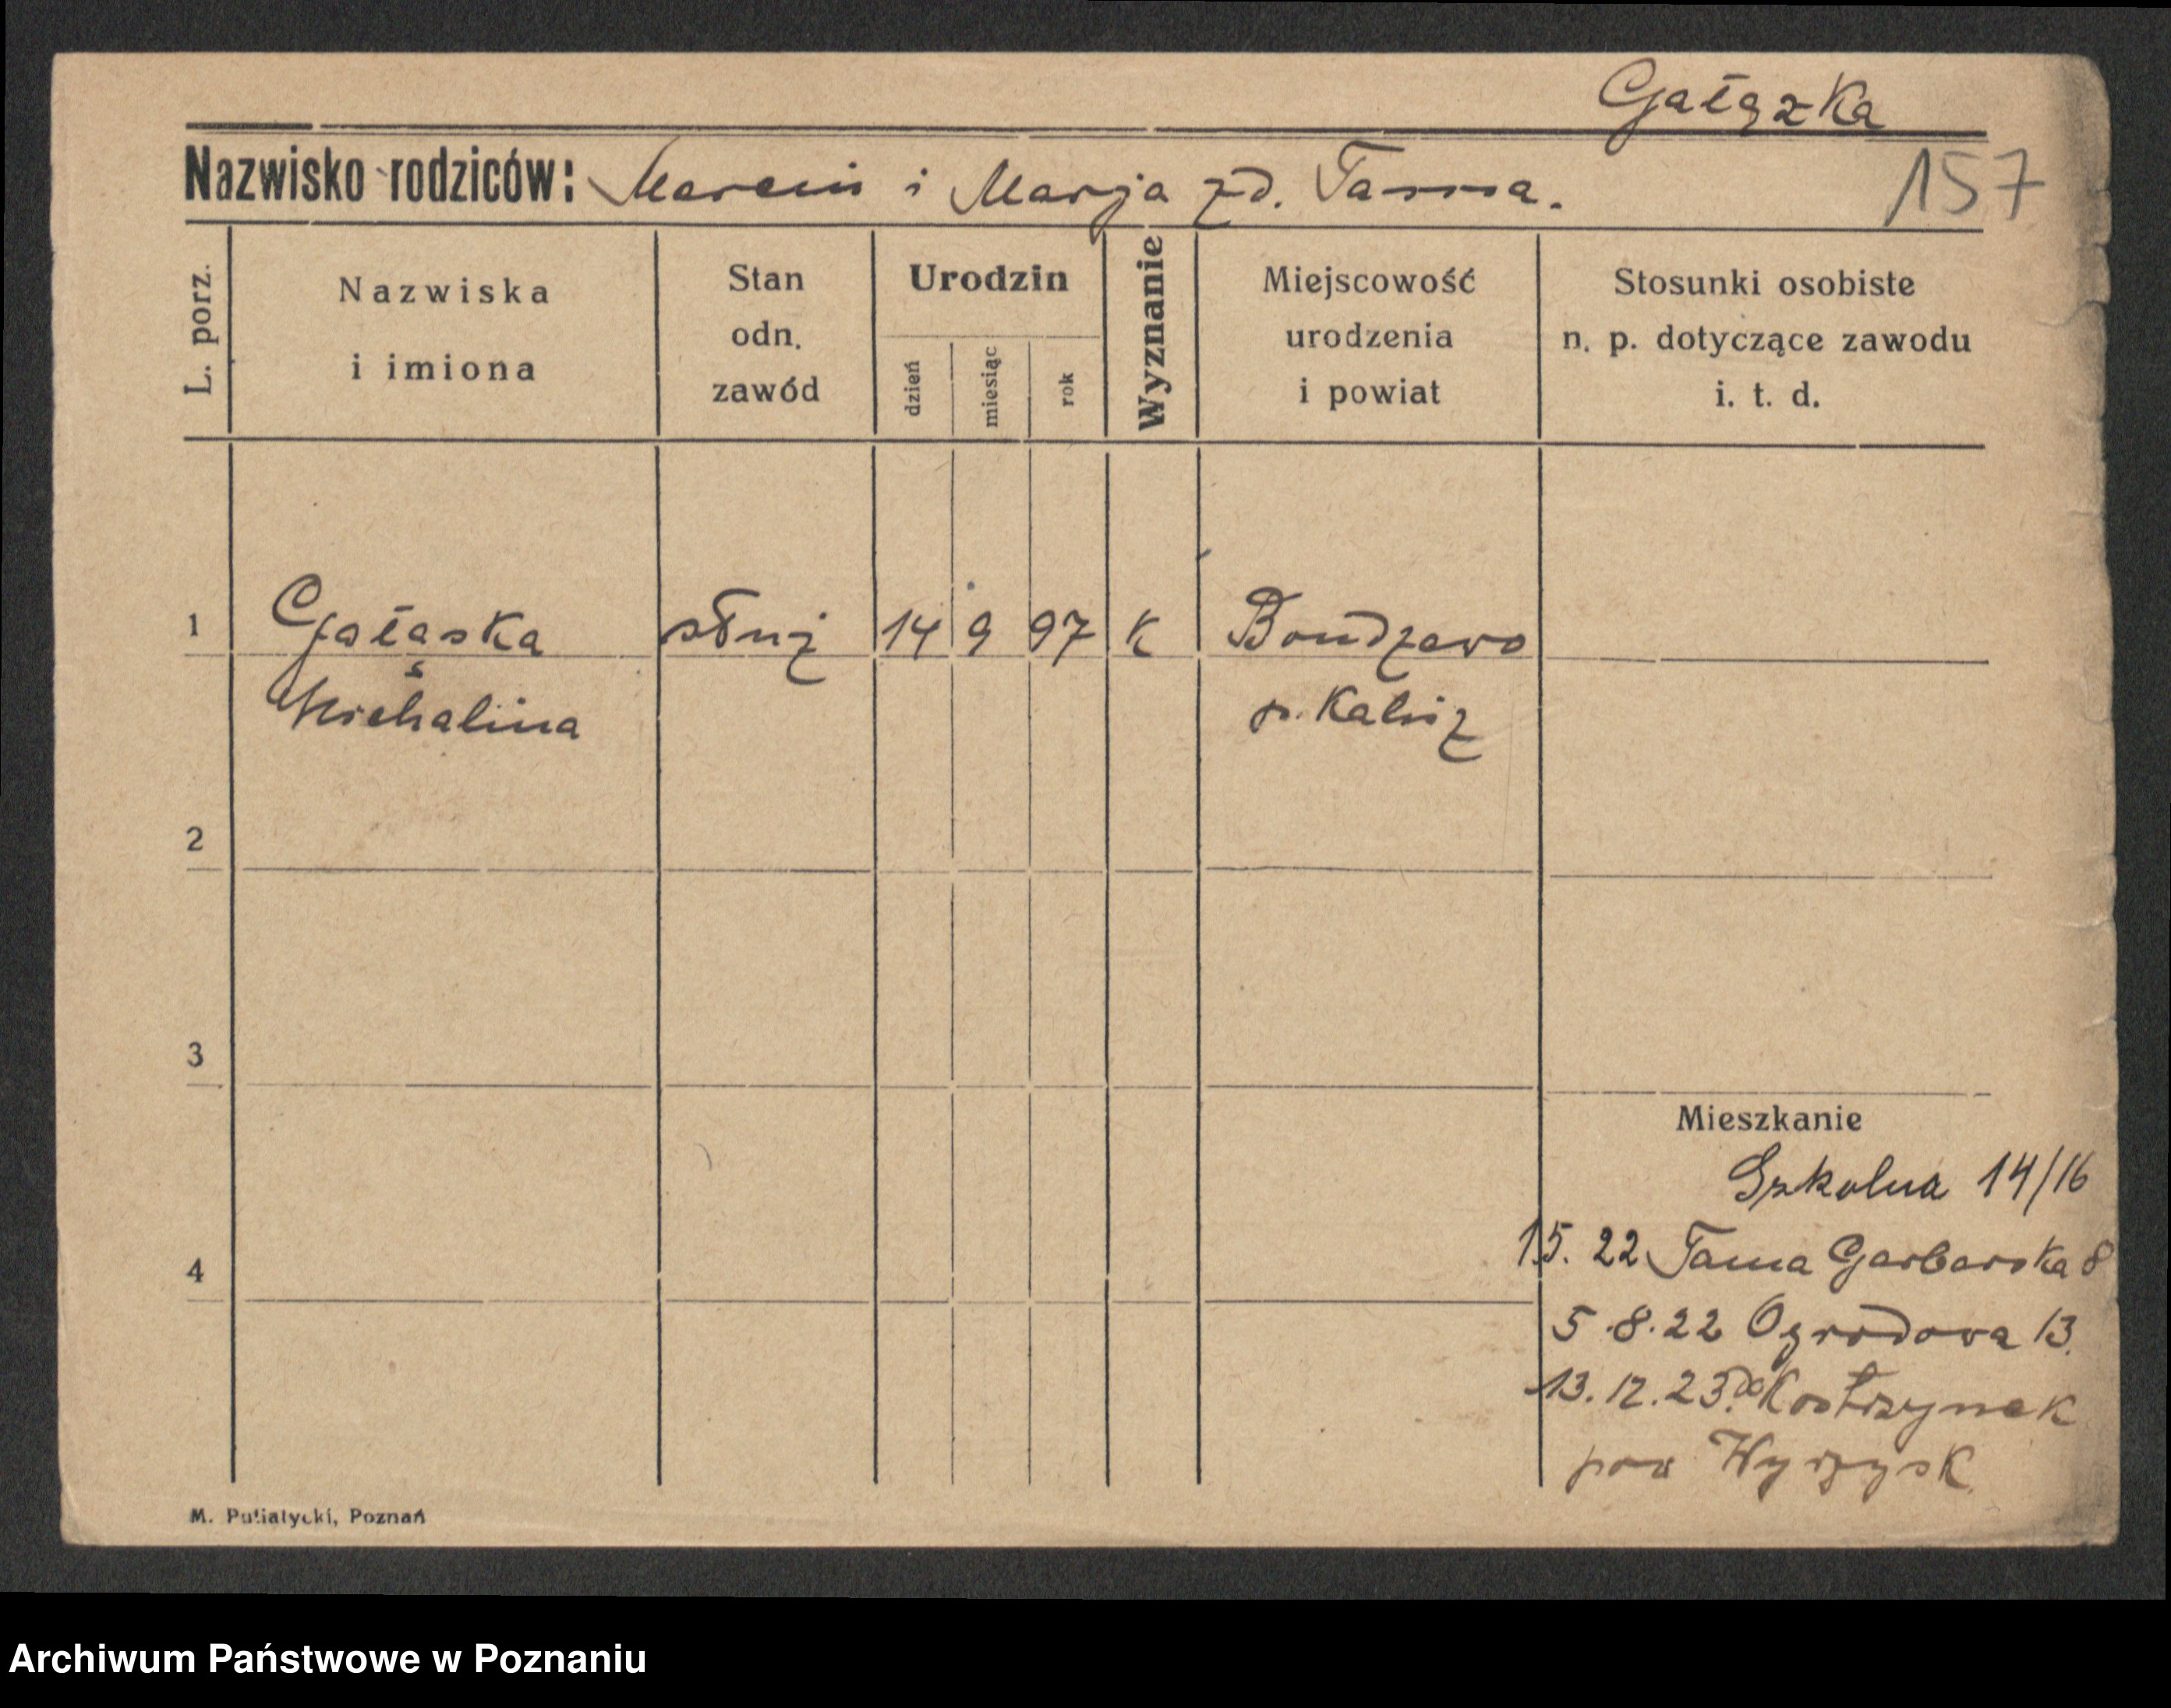 Gałązka
Nazwisko rodziców: Marcin i Marja zd. Tamma.
157
L. porz.
Nazwiska
i imiona
Stan
odn.
zawód
Urodzin
dzień
miesiąc
rok
Wyznanie
Miejscowość
urodzenia
i powiat
Stosunki osobiste
n. p. dotyczące zawodu
i. t. d.
1
Gałąska
służ
14
9
97
K
Michalina
p. Kalisz
2
3
4
Mieszkanie
Szkolna 14/16
15. 22 Tama Garbarska 8
5.8.22 Ogrodowa 13.
13.12.23. do Kostrzynek
pow Wyrzysk.
M. Putiatycki, Poznań
Archiwum Państwowe w Poznaniu